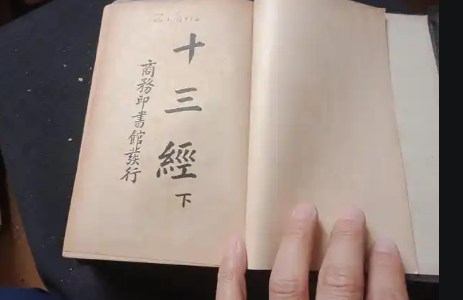 十三經下
商務印書館發行